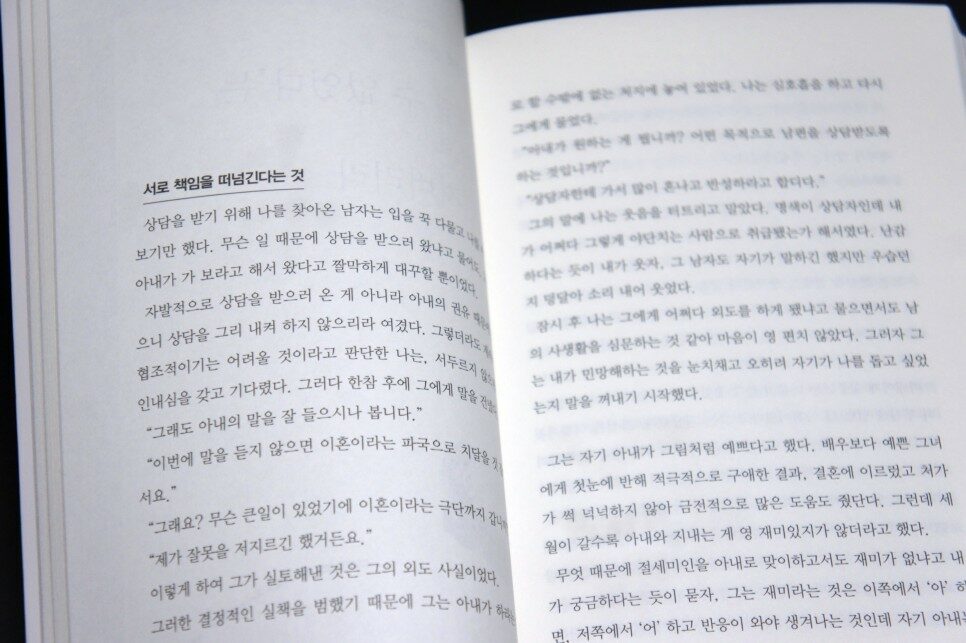 서로 책임을 떠넘긴다는 것
상담을 받기 위해 나를 찾아온 남자는 입을 꾹 다물고
보기만 했다. 무슨 일 때문에 상담을 받으러 왔냐고 물어도,
아내가 가 보라고 해서 왔다고 짤막하게 대꾸할 뿐이었다.
자발적으로 상담을 받으러 온 게 아니라 아내의 권유
으니 상담을 그리 내켜 하지 않으리라 여겼다. 그렇더라도
협조적이기는 어려울 것이라고 판단한 나는, 서두르지
인내심을 갖고 기다렸다. 그러다 한참 후에 그에게 말을
“그래도 아내의 말을 잘 들으시나 봅니다.”
“이번에 말을 듣지 않으면 이혼이라는 파국으로 치달을
서요.”
“그래요? 무슨 큰일이 있었기에 이혼이라는 극단까지
“제가 잘못을 저지르긴 했거든요.”
이렇게 하여 그가 실토해낸 것은 그의 외도 사실이었다.
그러한 결정적인 실책을 범했기 때문에 그는 아내가
로 할 수밖에 없는 처지에 놓여 있었다. 나는 심호흡을 하고 다시
그에게 물었다.
“아내가 원하는 게 뭡니까? 어떤 목적으로 남편을 상담받도록
하는 것입니까?”
“상담자한테 가서 많이 혼나고 반성하라고 합디다.”
그의 말에 나는 웃음을 터트리고 말았다. 명색이 상담자인데 내
가 어쩌다 그렇게 야단치는 사람으로 취급됐는가 해서였다. 난감
하다는 듯이 내가 웃자, 그 남자도 자기가 말하긴 했지만 우습던
지 덩달아 소리 내어 웃었다.
잠시 후 나는 그에게 어쩌다 외도를 하게 됐냐고 물으면서도 남
의 사생활을 심문하는 것 같아 마음이 영 편치 않았다. 그러자 그
는 내가 민망해하는 것을 눈치채고 오히려 자기가 나를 돕고 싶었
는지 말을 꺼내기 시작했다.
그는 자기 아내가 그림처럼 예쁘다고 했다. 배우보다 예쁜 그녀
에게 첫눈에 반해 적극적으로 구애한 결과, 결혼에 이르렀고 처가
가 썩 넉넉하지 않아 금전적으로 많은 도움도 줬단다. 그런데 세
월이 갈수록 아내와 지내는 게 영 재미있지가 않더라고 했다.
무엇 때문에 절세미인을 아내로 맞이하고서도 재미가 없냐고 내
가 궁금하다는 듯이 묻자, 그는 재미라는 것은 이쪽에서 ‘아’ 하
면, 저쪽에서 ‘어’ 하고 반응이 와야 생겨나는 것인데 자기 아내는